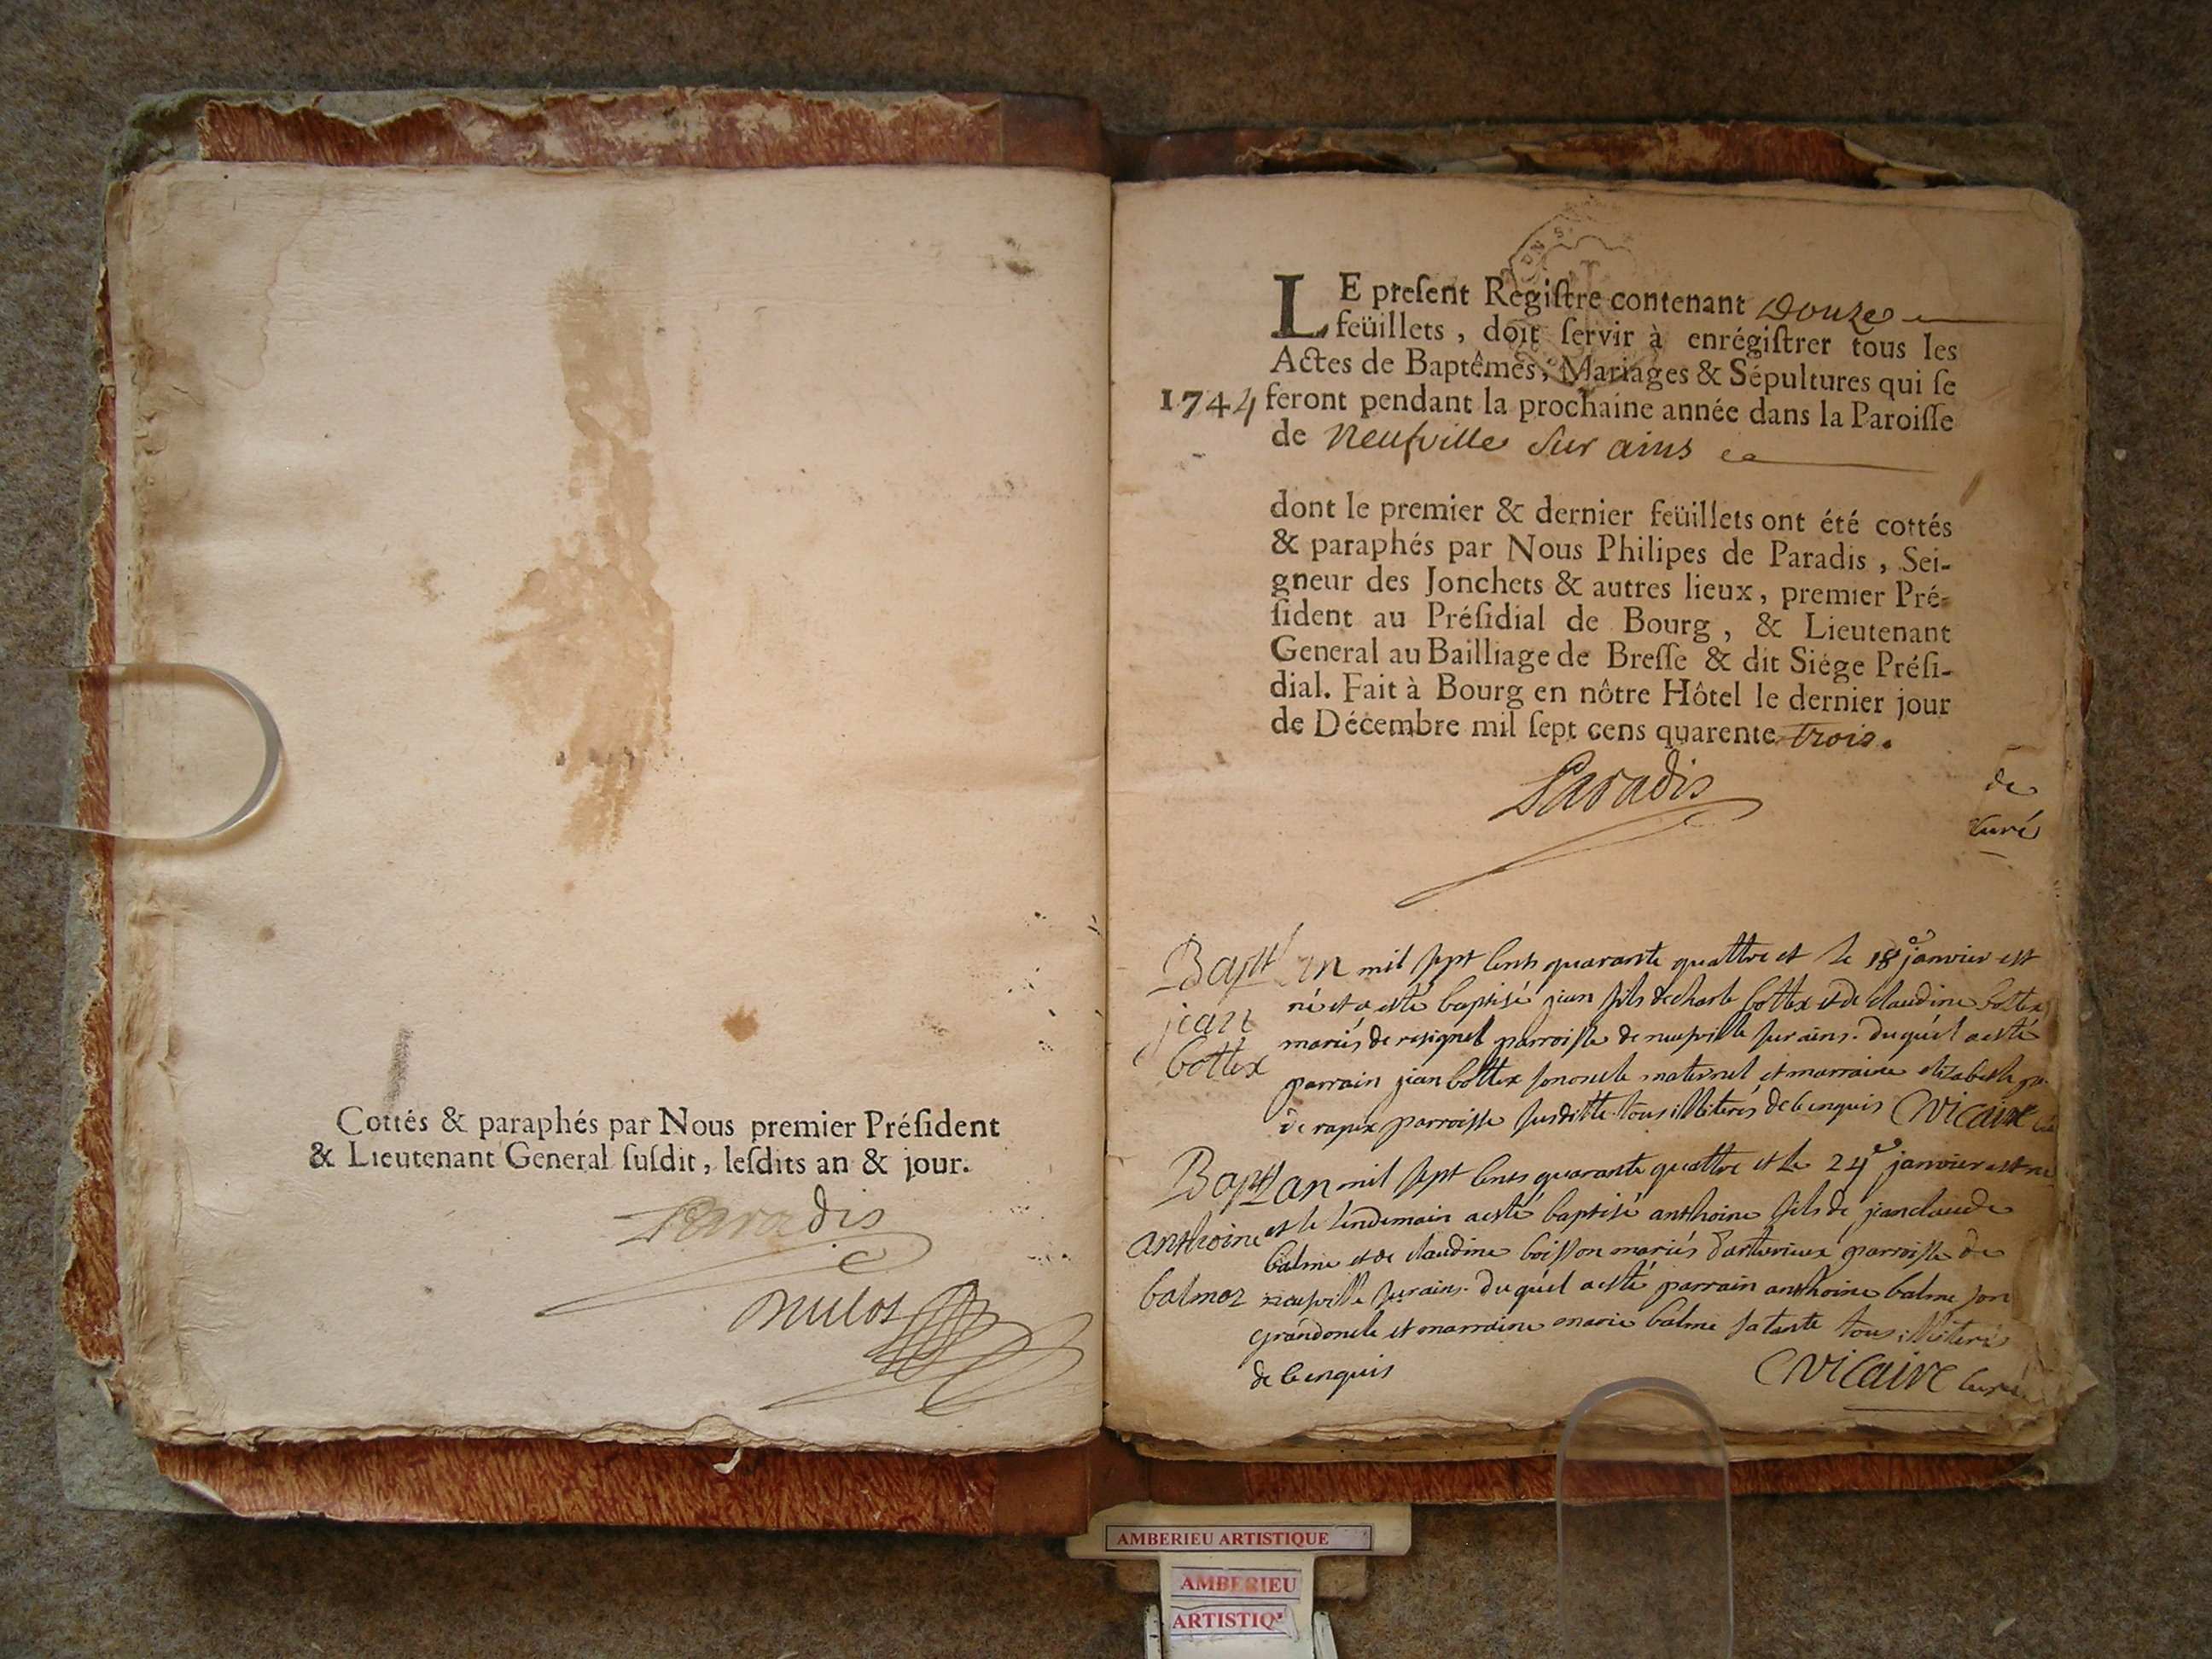 Cottés & paraphés par Nous premier Préſident
& Lieutenant General ſuſdit, leſdits an & jour.
Paradis
1744
LE preſent Regiſtre contenant Douze
feüillets, doit ſervir à enrégiſtrer tous les
Actes de Baptêmes, Mariages & Sépultures qui ſe
feront pendant la prochaine année dans la Paroiſſe
de Neufville Sur ains
dont le premier & dernier feüillets ont été cottés
& paraphés par Nous Philipes de Paradis, Sei-
gneur des Jonchets & autres lieux, premier Pré-
ſident au Préſidial de Bourg, & Lieutenant
General au Bailliage de Breſſe & dit Siége Préſi-
dial. Fait à Bourg en nôtre Hôtel le dernier jour
de Décembre mil ſept cens quarente trois.
Paradis
de
curé
Bapt
jean
bottex
an mil sept cents quarante quattre et le 18e janvier est
né et a esté baptisé jean fils de charle bottex et de claudine bottex
mariés de resignel parroisse de neufville sur ains. duquel a esté
parrain jean bottex son oncle maternel et marraine elizabeth
de rapix parroisse susditte tous illiterés de ce enquis Vicaire
Bapt
anthoine
balmez
an mil sept cents quarante quattre et le 24e janvier est né
et le lendemain a esté baptisé anthoine fils de jean claude
balme et de claudine boisson mariés parroisse de
neufville sur ains. duquel a esté parrain anthoine balme son
grandoncle et marraine marie balme sa tante tous illiterés
de ce enquis
Vicaire curé
AMBERIEU ARTISTIQUE
AMBERIEU
ARTISTIQ